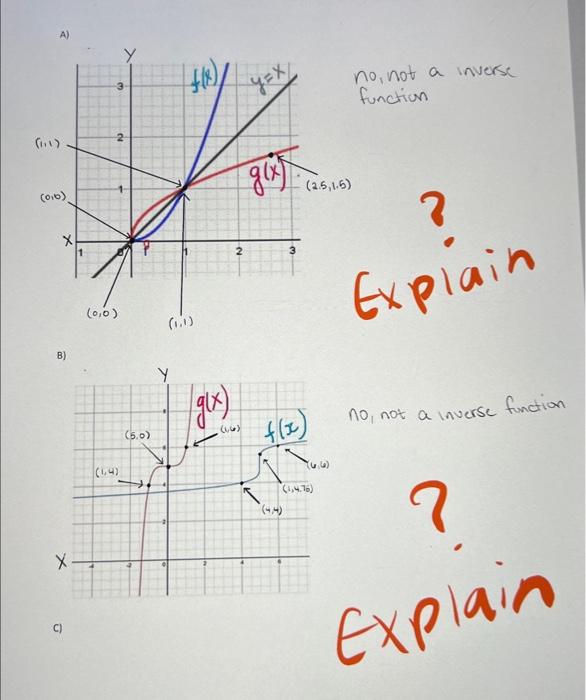 A)
Y
f(x)
y=x
3
no, not a inverse
function
2
(1,1)
g(x)
(2.5,1.5)
1
(0,0)
?
X
1
0
1
2
3
Explain
(0,0)
(1,1)
B)
Y
g(x)
no, not a inverse function
(5,0)
(1,6)
f(x)
(1,4)
(6,6)
(1,4.75)
4
(4,4)
?
2
X
-4
-2
0
2
4
6
Explain
C)